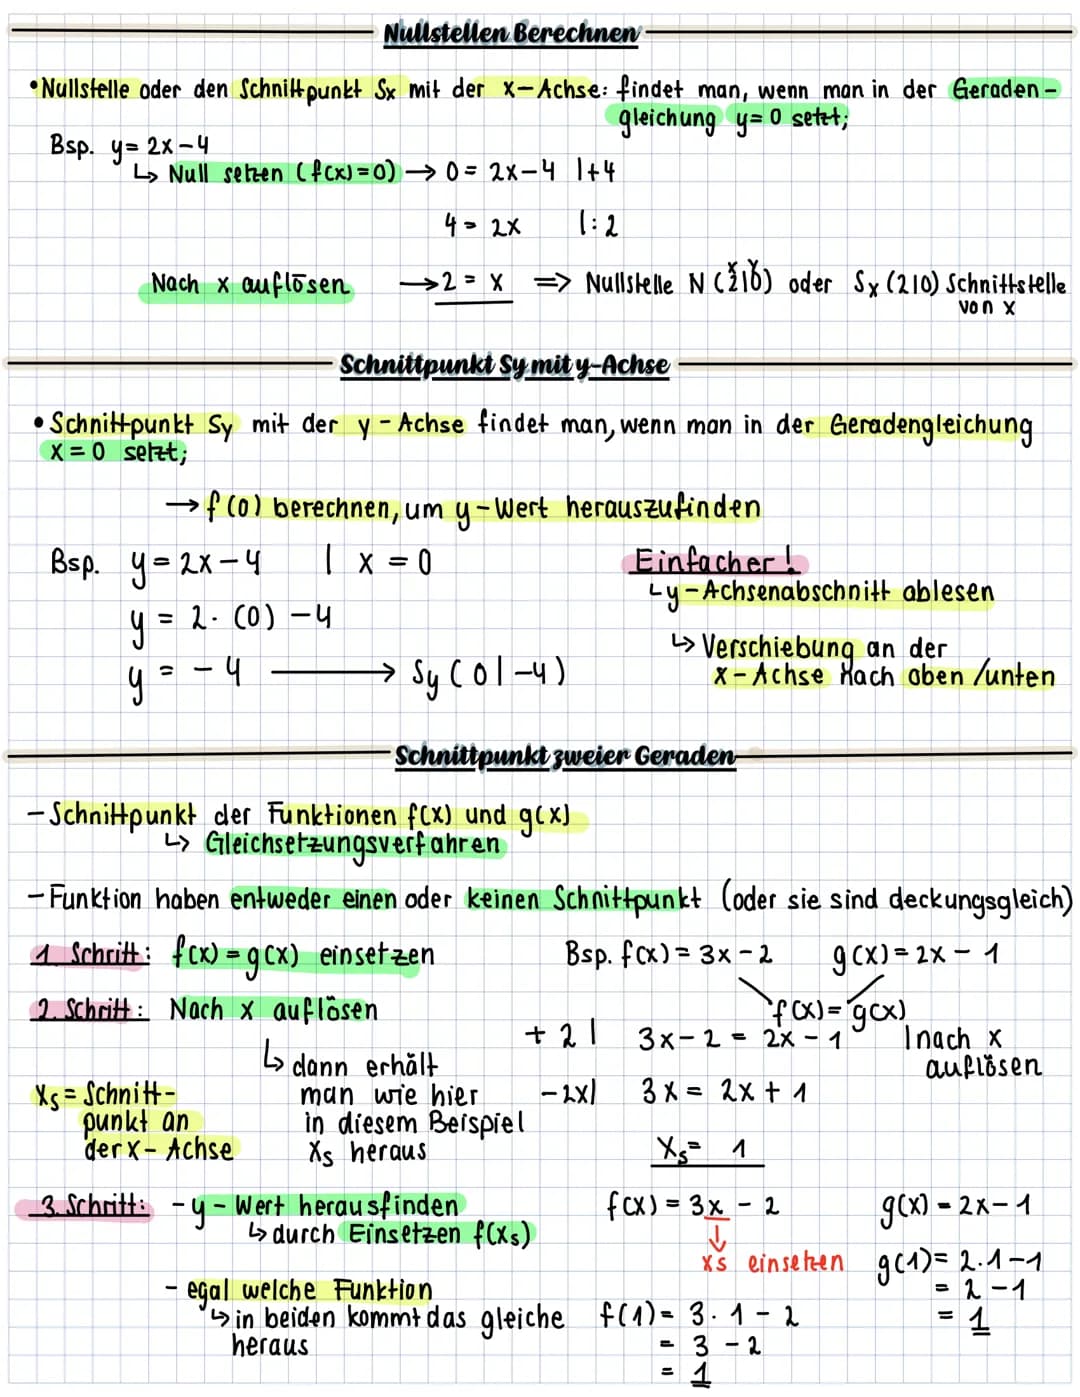 Nullstellen Berechnen
• Nullstelle oder den Schnittpunkt Sx mit der x-Achse: findet man, wenn man in der Geraden-
gleichung y=0 setzt;
Bsp. y= 2x-4
↳ Null setzen (f(x)=0) → 0 = 2x-4 |+4
4 = 2x |:2
Nach x auflösen → 2 = x => Nullstelle N (2|0) oder Sx (2|0) Schnittstelle
x y
von x
Schnittpunkt Sy mit y-Achse
• Schnittpunkt Sy mit der y-Achse findet man, wenn man in der Geradengleichung
x=0 setzt;
→ f(0) berechnen, um y-Wert herauszufinden
Bsp. y= 2x-4 | x=0
y = 2·(0) -4
y = -4 → Sy (0|-4)
Einfacher!
↳ y-Achsenabschnitt ablesen
↳ Verschiebung an der
x-Achse nach oben/unten
Schnittpunkt zweier Geraden
- Schnittpunkt der Funktionen f(x) und g(x)
↳ Gleichsetzungsverfahren
- Funktion haben entweder einen oder keinen Schnittpunkt (oder sie sind deckungsgleich)
1. Schritt: f(x)=g(x) einsetzen
Bsp. f(x)= 3x-2 g(x)=2x-1
2. Schritt: Nach x auflösen
f(x)=g(x)
+2| 3x-2 = 2x-1 |nach x
auflösen
↳ dann erhält
man wie hier
in diesem Beispiel
xs heraus
-2x| 3x = 2x+1
xs = Schnitt-
punkt an
der x-Achse
xs = 1
3. Schritt: - y-Wert herausfinden
↳ durch Einsetzen f(xs)
- egal welche Funktion
↳ in beiden kommt das gleiche
heraus
f(x) = 3x - 2
xs einsetzen
f(1)= 3·1-2
= 3-2
= 1
g(x)=2x-1
g(1)=2·1-1
= 2-1
= 1